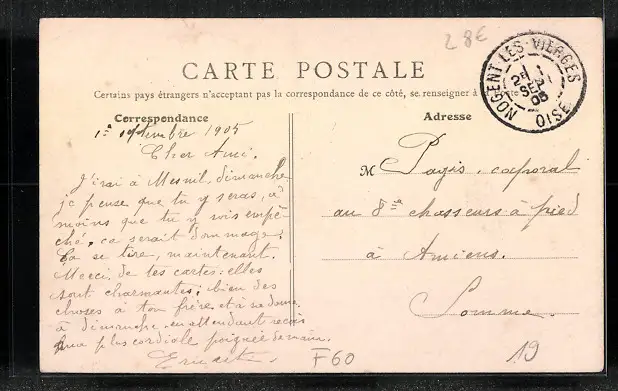 28€
CARTE POSTALE
Certains pays étrangers n'acceptant pas la correspondance de ce côté, se renseigner à la Poste
Correspondance
1er septembre 1905
Cher Ami.
J'irai à Mesnil, dimanche
je pense que tu y seras, à
moins que tu y sois empê-
ché, ça serait dommage.
Ça se tire, maintenant.
Merci de tes cartes: elles
sont charmantes; bien des
choses à ton frère et à
à dimanche en attendant reçois
ma plus cordiale poignée de main.
Adresse
M Pagis, caporal
au 8me chasseurs à pied
à Amiens.
Somme.
NOGENT-LES-VIERGES
SEPT
05
OISE
F60
19